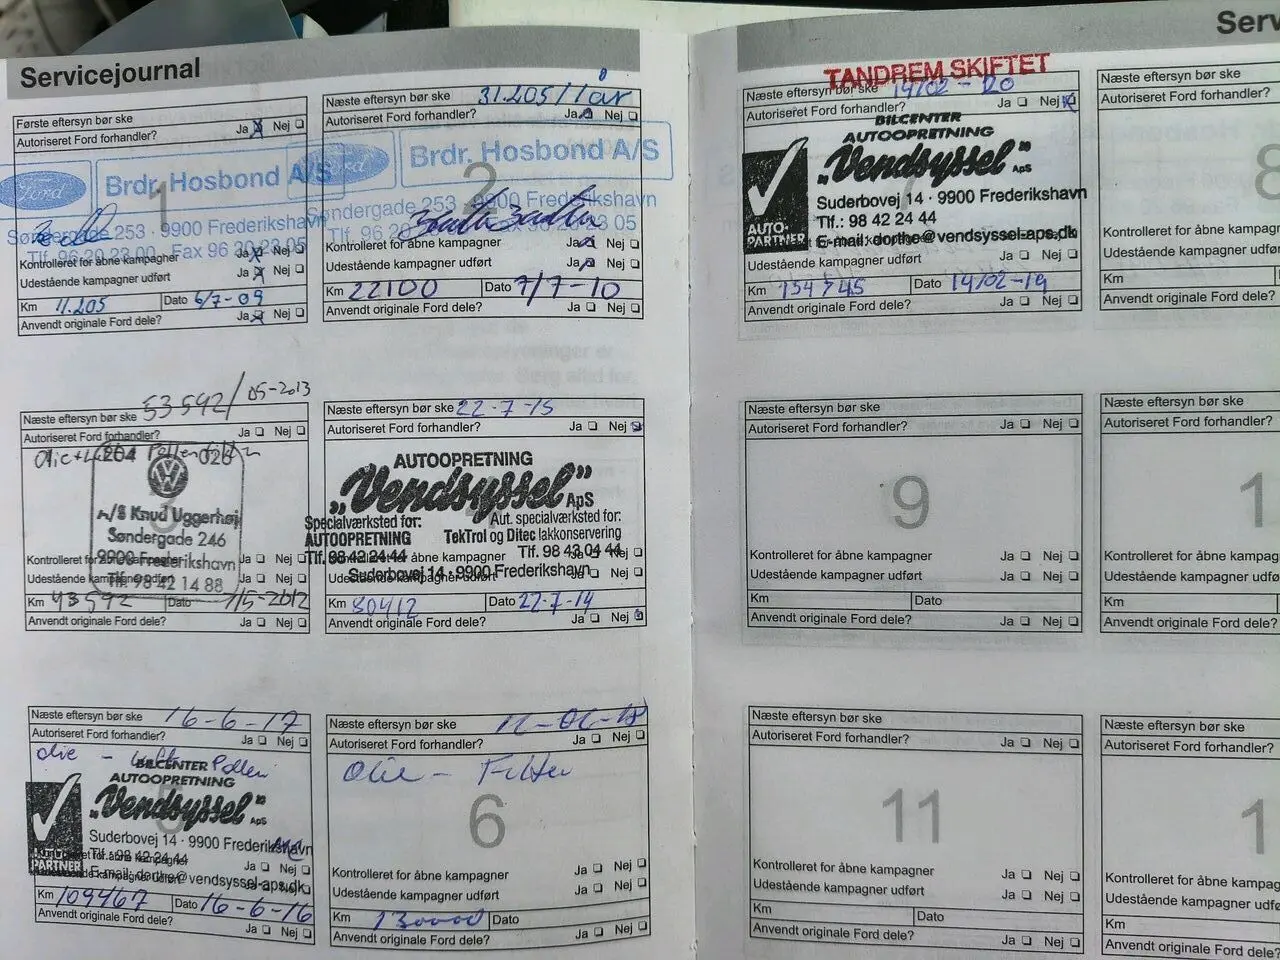 Servicejournal
Første eftersyn bør ske
Autoriseret Ford forhandler? Ja Nej
Ford Brdr. Hosbond A/S
1
Søndergade 253 · 9900 Frederikshavn
Tlf. 96 20 23 00 · Fax 96 20 23 05
Kontrolleret for åbne kampagner Ja Nej
Udestående kampagner udført Ja Nej
Km 11.205 Dato 6/7-09
Anvendt originale Ford dele? Ja Nej
Næste eftersyn bør ske 31.205/1 år
Autoriseret Ford forhandler? Ja Nej
Ford Brdr. Hosbond A/S
2
Søndergade 253 · 9900 Frederikshavn
Tlf. 96 20 23 05
Kontrolleret for åbne kampagner Ja Nej
Udestående kampagner udført Ja Nej
Km 22100 Dato 7/7-10
Anvendt originale Ford dele? Ja Nej
Næste eftersyn bør ske 53592/05-2013
Autoriseret Ford forhandler? Ja Nej
A/S Knud Uggerhøj
Søndergade 246
9900 Frederikshavn
Tlf. 98 42 14 88
Kontrolleret for åbne kampagner Ja Nej
Udestående kampagner udført Ja Nej
Km 43592 Dato /5-2012
Anvendt originale Ford dele? Ja Nej
Næste eftersyn bør ske 22-7-15
Autoriseret Ford forhandler? Ja Nej
AUTOOPRETNING
"Vendsyssel" ApS
Specialværksted for: Aut. specialværksted for:
AUTOOPRETNING TekTrol og Ditec lakkonservering
Tlf. 98 42 24 44 Tlf. 98 43 04 44
Suderbovej 14 · 9900 Frederikshavn
Kontrolleret for åbne kampagner Ja Nej
Udestående kampagner udført Ja Nej
Km 80412 Dato 22-7-14
Anvendt originale Ford dele? Ja Nej
Næste eftersyn bør ske 16-6-17
Autoriseret Ford forhandler? Ja Nej
Olie - Luft Pollen
BILCENTER
AUTOOPRETNING
"Vendsyssel" ApS
Suderbovej 14 · 9900 Frederikshavn
Tlf.: 98 42 24 44
E-mail: dorthe@vendsyssel-aps.dk
AUTO-PARTNER
Kontrolleret for åbne kampagner Ja Nej
Udestående kampagner udført Ja Nej
Km 109467 Dato 16-6-16
Anvendt originale Ford dele? Ja Nej
Næste eftersyn bør ske
Autoriseret Ford forhandler? Ja Nej
Olie - Filter
6
Kontrolleret for åbne kampagner Ja Nej
Udestående kampagner udført Ja Nej
Km 130000 Dato
Anvendt originale Ford dele? Ja Nej
Serv
TANDREM SKIFTET
Næste eftersyn bør ske 14/02-20
Autoriseret Ford forhandler? Ja Nej
BILCENTER
AUTOOPRETNING
"Vendsyssel" ApS
Suderbovej 14 · 9900 Frederikshavn
Tlf.: 98 42 24 44
E-mail: dorthe@vendsyssel-aps.dk
AUTO-PARTNER
Udestående kampagner udført Ja Nej
Km 154745 Dato 14/02-19
Anvendt originale Ford dele? Ja Nej
Næste eftersyn bør ske
Autoriseret Ford forhandler?
8
Kontrolleret for åbne kampag
Udestående kampagner udført
Km
Anvendt originale Ford dele?
Næste eftersyn bør ske
Autoriseret Ford forhandler? Ja Nej
9
Kontrolleret for åbne kampagner Ja Nej
Udestående kampagner udført Ja Nej
Km Dato
Anvendt originale Ford dele? Ja Nej
Næste eftersyn bør ske
Autoriseret Ford forhandler?
1
Kontrolleret for åbne kampag
Udestående kampagner udført
Km
Anvendt originale Ford dele?
Næste eftersyn bør ske
Autoriseret Ford forhandler? Ja Nej
11
Kontrolleret for åbne kampagner Ja Nej
Udestående kampagner udført Ja Nej
Km Dato
Anvendt originale Ford dele? Ja Nej
Næste eftersyn bør ske
Autoriseret Ford forhandler?
1
Kontrolleret for åbne kampag
Udestående kampagner udført
Km
Anvendt originale Ford dele?